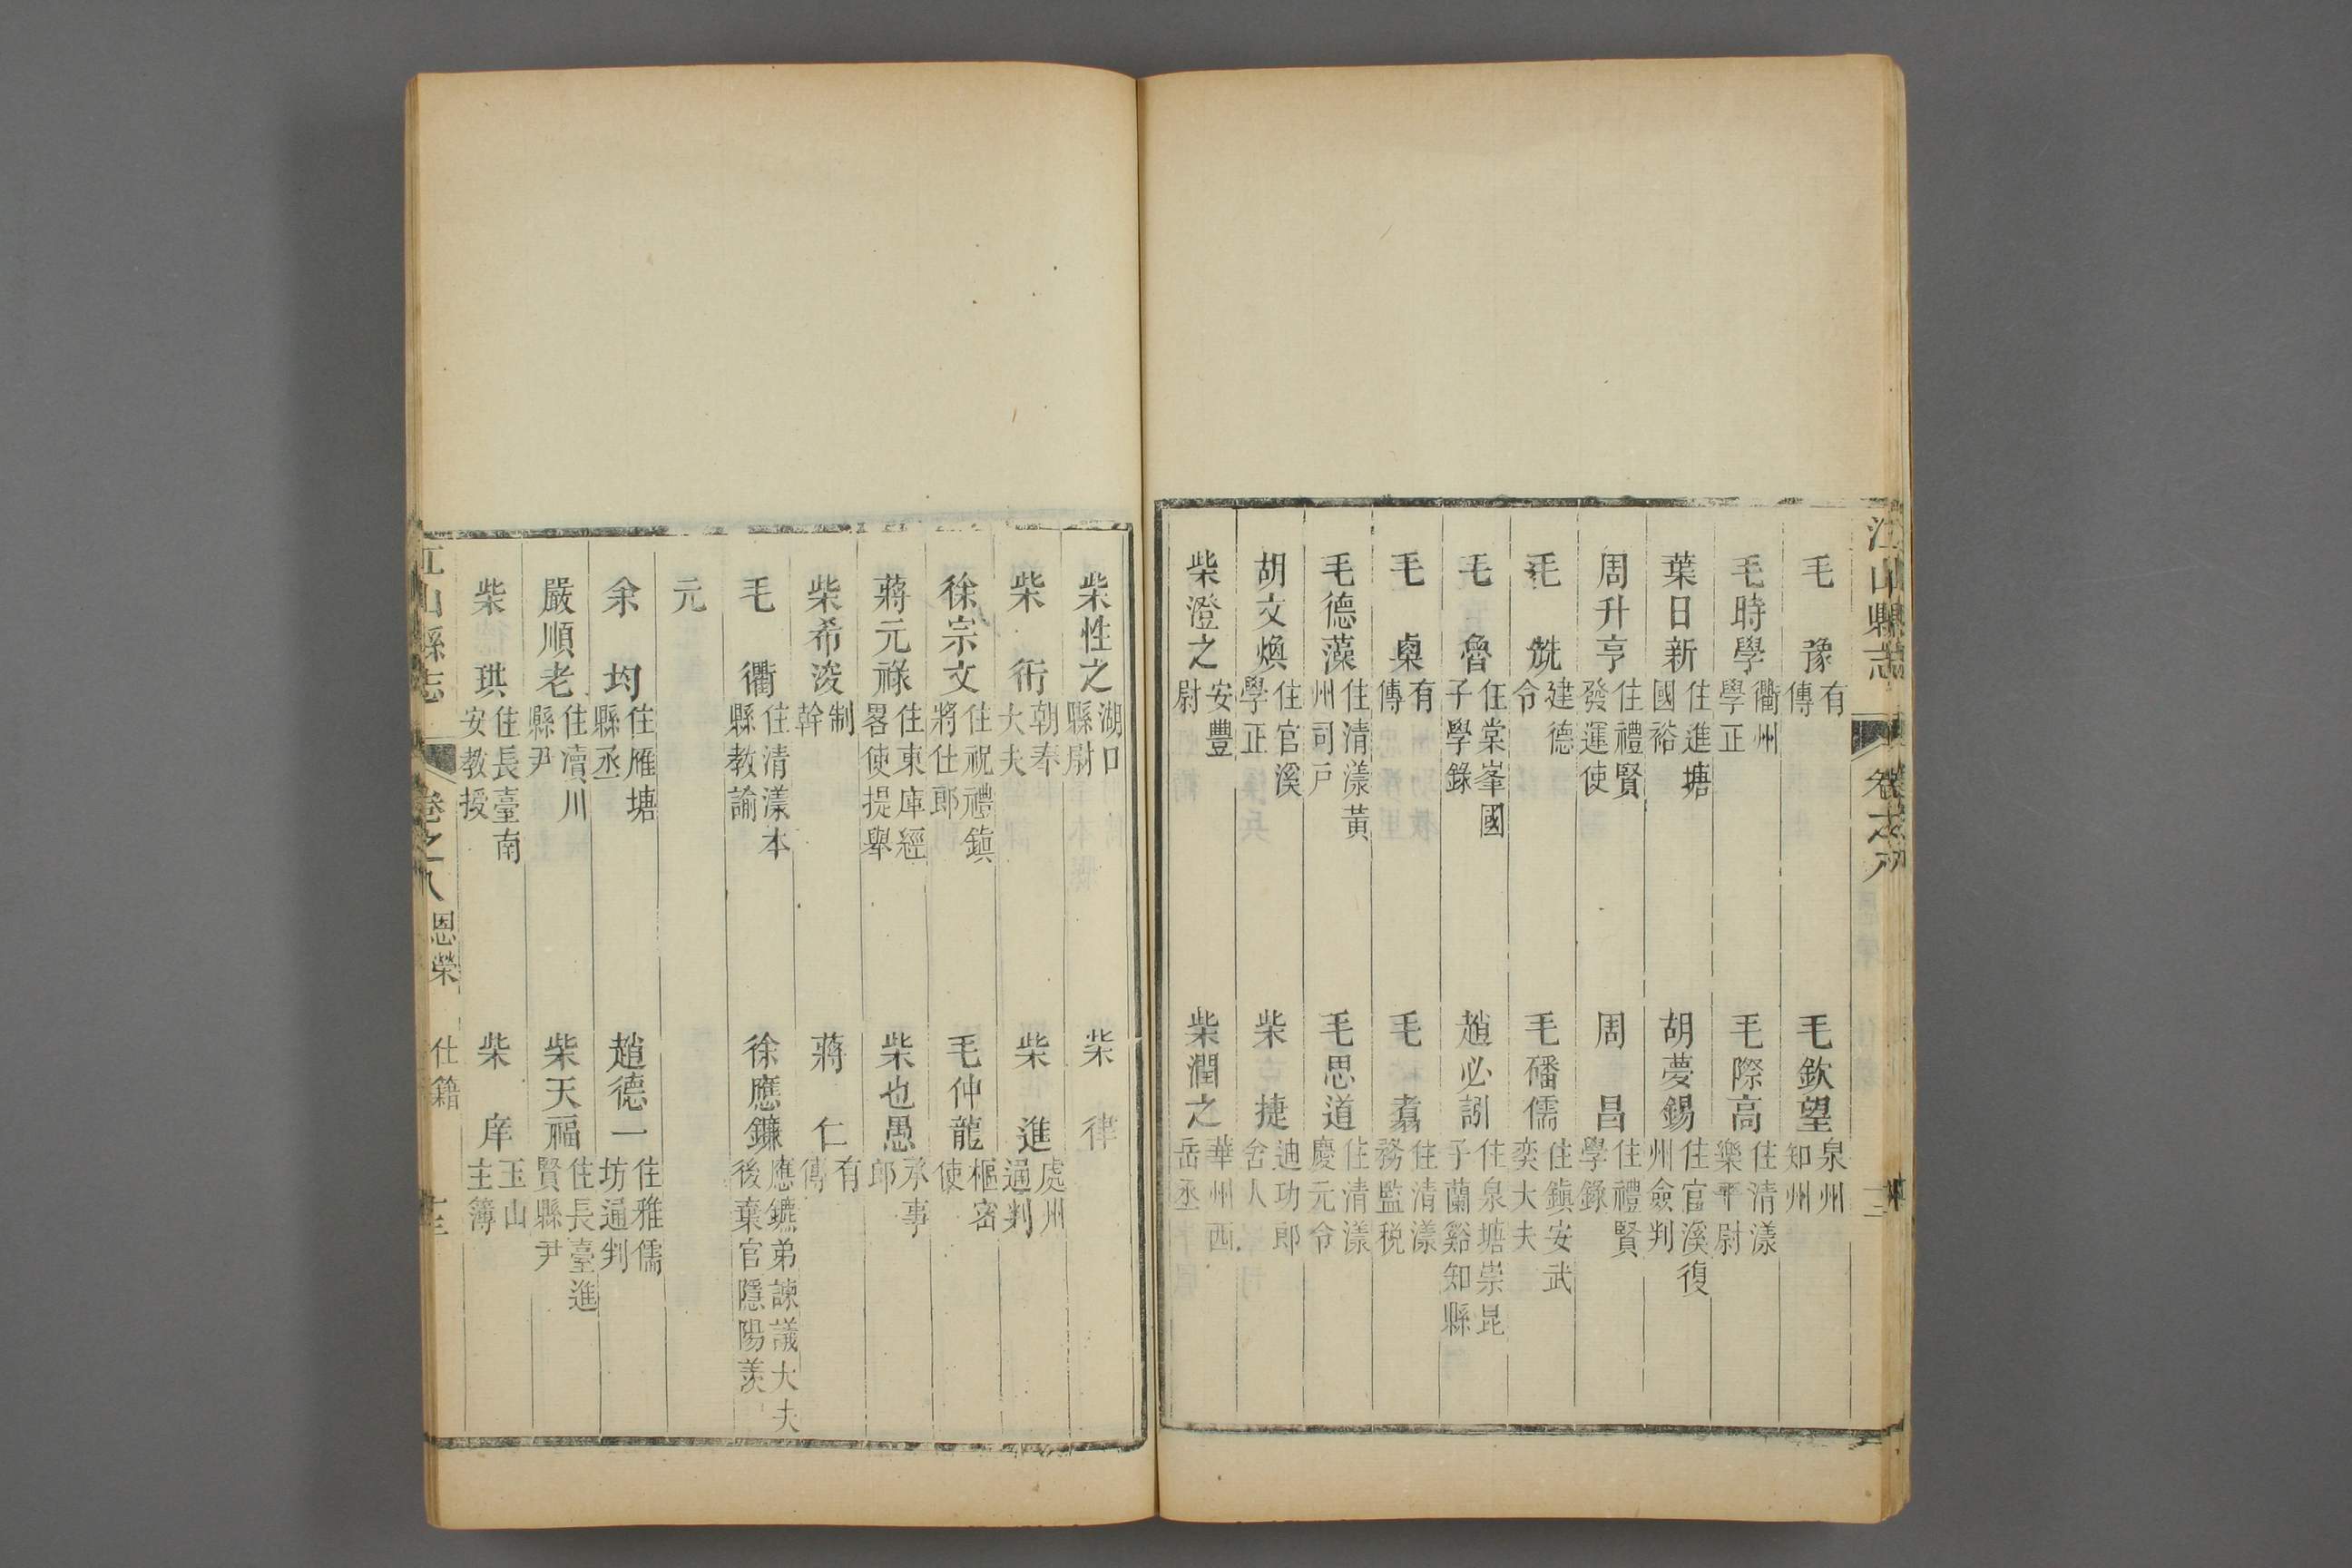 江山縣志 卷之八
毛豫 有傳 毛欽望 泉州知州
毛時學 衢州學正 毛際高 住清漾樂平尉
葉日新 住進塘國裕 胡夢錫 住官溪復州僉判
周升亨 住禮賢發運使 周昌 住禮賢學錄
毛兟 建德令 毛磻儒 住鎮安武奕大夫
毛魯 住棠峯國子學錄 趙必訠 住泉塘崇昆子蘭谿知縣
毛㮚 有傳 毛翥 住清漾務監税
毛德藻 住清漾黃州司戸 毛思道 住清漾慶元令
胡文煥 住官溪學正 柴捷 迪功郎舍人
柴澄之 安豐尉 柴潤之 華州西岳丞
柴性之 湖口縣尉 柴律
柴衎 朝奉大夫 柴進 處州通判
徐宗文 住祝禮鎮將仕郎 毛仲龍 樞密使
蔣元祿 住東庫經畧使提舉 柴也愚 承事郎
柴希浚 制幹 蔣仁 有傳
毛衢 住清漾本縣教諭 徐應鐮 應鑣弟諫議大夫後棄官隱陽羨
元
余均 住雁塘縣丞 趙德一 住雅儒坊通判
嚴順老 住瀆川縣尹 柴天福 住長臺進賢縣尹
柴珙 住長臺南安教授 柴庠 玉山主簿
江山縣志 卷之八 恩榮 仕籍 十三